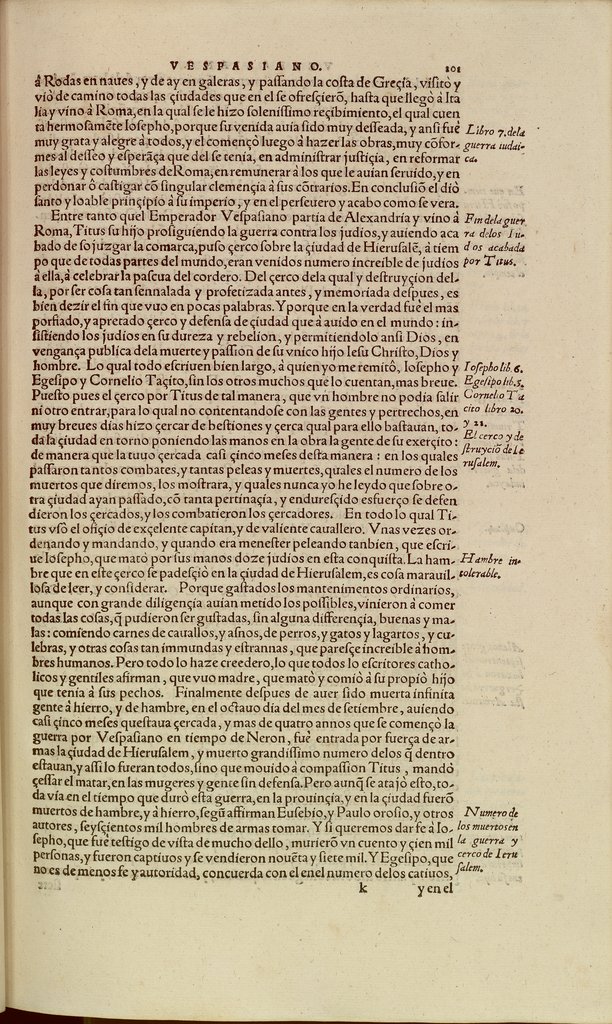 VESPASIANO. 201
â Rodas en naues, y de ay en galeras, y passando la costa de Greçia, visitò y
viò de camino todas las çiudades que en el se ofresçierõ, hasta que llegò â Ita
lia y vino â Roma, en la qual se le hizo solenissimo reçibimiento, el qual cuen
ta hermosamẽte Iosepho, porque su venida auia sido muy desseada, y ansi fuè
muy grata y alegre â todos, y el començò luego â hazer las obras, muy cõfor-
mes al desseo y esperãça que del se tenia, en administrar justiçia, en reformar
las leyes y costumbres de Roma, en remunerar â los que le auian seruido, y en
perdonar ô castigar cõ singular clemençia â sus cõtrarios. En conclusiõ el diò
santo y loable prinçipio â su imperio, y en el perseuero y acabo como se vera.
Libro 7. de la
guerra iudai-
ca.
Entre tanto quel Emperador Vespasiano partia de Alexandria y vino â
Roma, Titus su hijo prosiguiendo la guerra contra los judios, y auiendo aca
bado de sojuzgar la comarca, puso çerco sobre la çiudad de Hierusalẽ, â tiem
po que de todas partes del mundo, eran venidos numero increible de judios
â ella, â celebrar la pascua del cordero. Del çerco dela qual y destruyçion del-
la, por ser cosa tan sennalada y profetizada antes, y memoriada despues, es
bien dezir el fin que vuo en pocas palabras. Y porque en la verdad fuè el mas
porfiado, y apretado çerco y defensa de çiudad que â auido en el mundo: in-
sistiendo los judios en su dureza y rebelion, y permitiendolo ansi Dios, en
vengança publica dela muerte y passion de su vnico hijo Iesu Christo, Dios y
hombre. Lo qual todo escriuen bien largo, â quien yo me remitô, Iosepho y
Egesipo y Cornelio Taçito, sin los otros muchos que lo cuentan, mas breue.
Puesto pues el çerco por Titus de tal manera, que vn hombre no podia salir
ni otro entrar, para lo qual no contentandose con las gentes y pertrechos, en
muy breues dias hizo çercar de bestiones y çerca qual para ello bastauan, to-
da la çiudad en torno poniendo las manos en la obra la gente de su exerçito:
de manera que la tuuo çercada casi çinco meses desta manera: en los quales
passaron tantos combates, y tantas peleas y muertes, quales el numero de los
muertos que diremos, los mostrara, y quales nunca yo he leydo que sobre o-
tra çiudad ayan passado, cõ tanta pertinaçia, y enduresçido esfuerço se defen
dieron los çercados, y los combatieron los çercadores. En todo lo qual Ti-
tus vsò el ofiçio de exçelente capitan, y de valiente cauallero. Vnas vezes or-
denando y mandando, y quando era menester peleando tanbien, que escri-
ue Iosepho, que matò por sus manos doze judios en esta conquista. La ham-
bre que en este çerco se padesçiò en la çiudad de Hierusalem, es cosa marauil-
losa de leer, y considerar. Porque gastados los mantenimentos ordinarios,
aunque con grande diligençia auian metido los possibles, vinieron â comer
todas las cosas, q̃ pudieron ser gustadas, sin alguna differençia, buenas y ma-
las: comiendo carnes de cauallos, y asnos, de perros, y gatos y lagartos, y cu-
lebras, y otras cosas tan immundas y estrannas, que paresçe increible â hom-
bres humanos. Pero todo lo haze creedero, lo que todos lo escritores catho-
licos y gentiles afirman, que vuo madre, que matò y comiò â su propiò hijo
que tenia â sus pechos. Finalmente despues de auer sido muerta infinita
gente â hierro, y de hambre, en el octauo dia del mes de setiembre, auiendo
casi çinco meses questaua çercada, y mas de quatro annos que se començò la
guerra por Vespasiano en tiempo de Neron, fuè entrada por fuerça de ar-
mas la çiudad de Hierusalem, y muerto grandissimo numero delos q̃ dentro
estauan, y assi lo fueran todos, sino que mouido â compassion Titus, mandò
çessar el matar, en las mugeres y gente sin defensa. Pero aunq̃ se atajò esto, to-
da via en el tiempo que durò esta guerra, en la prouinçia, y en la çiudad fuerõ
muertos de hambre, y â hierro, segũ affirman Eusebio, y Paulo orosio, y otros
autores, seysçientos mil hombres de armas tomar. Y si queremos dar fe â Io-
sepho, que fuè testigo de vista de mucho dello, murierõ vn cuento y çien mil
personas, y fueron captiuos y se vendieron nouẽta y siete mil. Y Egesipo, que
no es de menos fe y autoridad, concuerda con el en el numero delos catiuos,
Fin de la guer
ra delos Iu-
dios acabada
por Titus.
Iosepho lib. 6.
Egesipo lib. 5.
Cornelio Ta
cito libro 20.
y 21.
El cerco y de
struyciõ de Ie
rusalem.
Hambre in-
tolerable.
Numero de
los muertos en
la guerra y
cerco de Ieru
salem.
k y en el